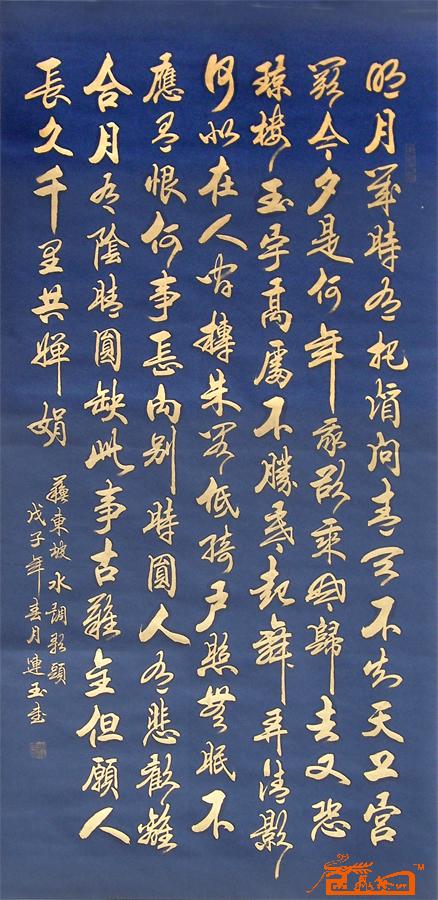 明月幾時有把酒問青天不知天上宮
闕今夕是何年我欲乘風歸去又恐
瓊樓玉宇高處不勝寒起舞弄清影
何似在人間轉朱閣低綺戶照無眠不
應有恨何事長向別時圓人有悲歡離
合月有陰晴圓缺此事古難全但願人
長久千里共嬋娟
蘇東坡水調歌頭
戊子年春月連玉書
TM